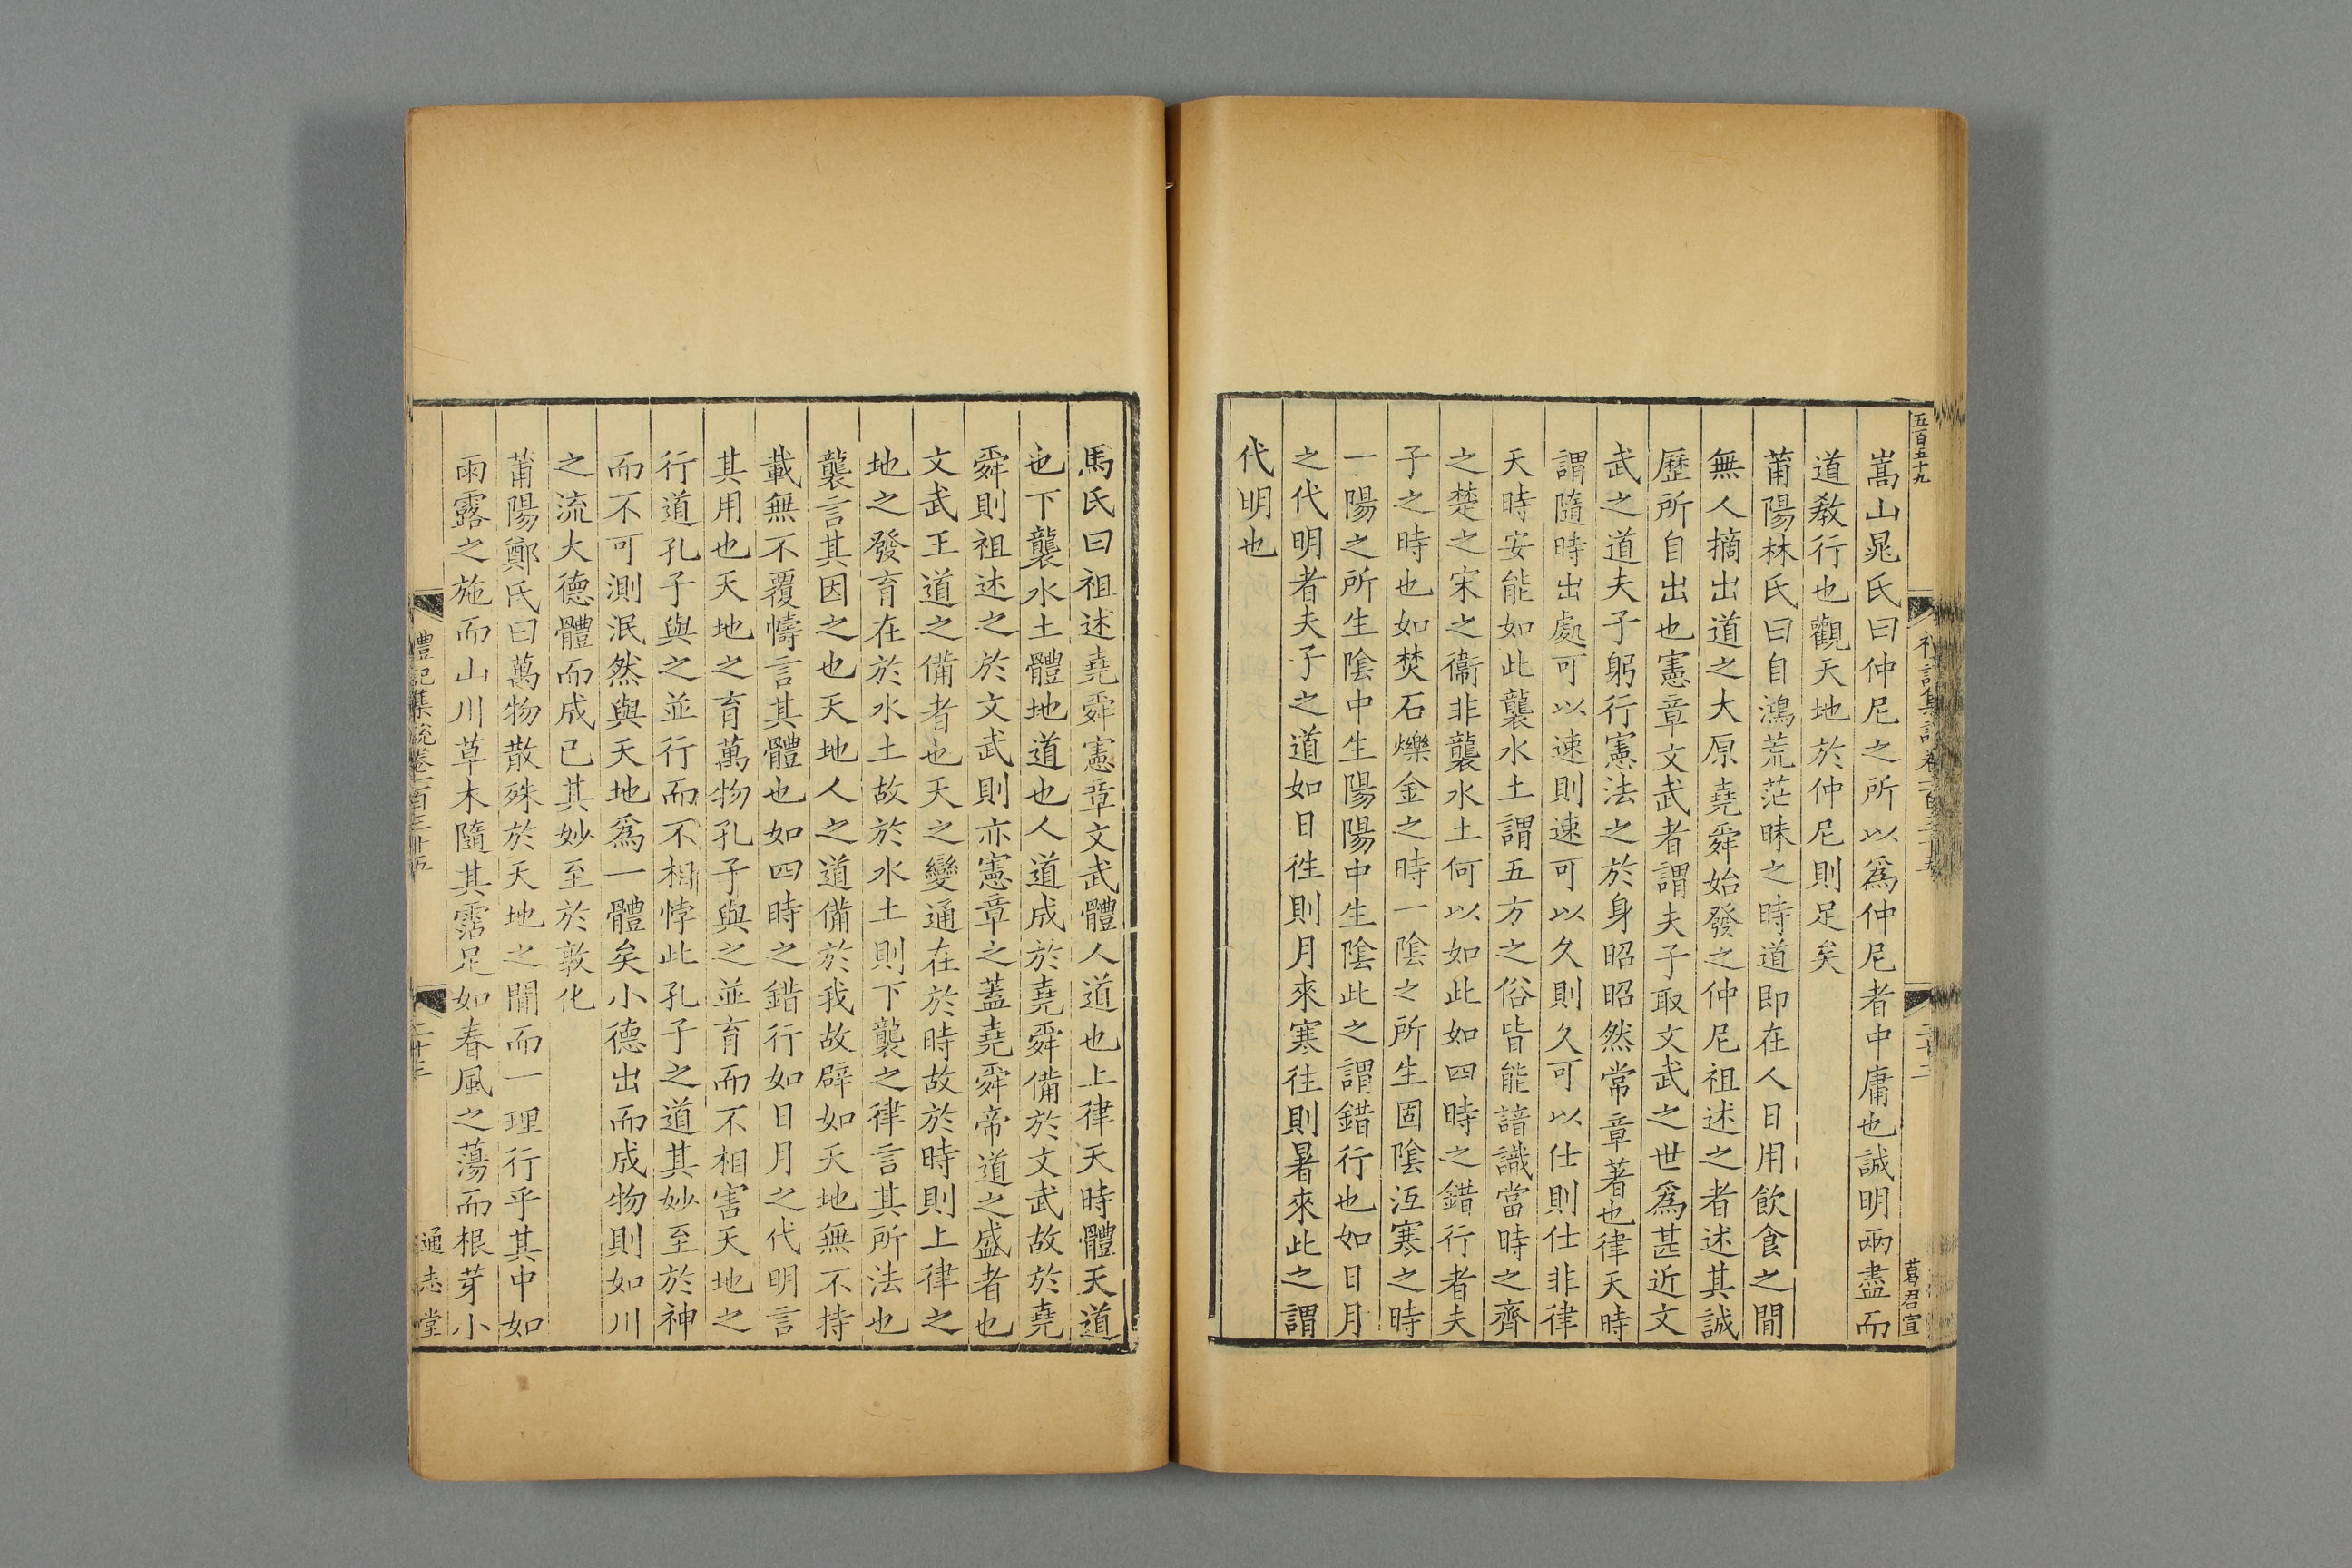 五百五十九
嵩山晁氏曰仲尼之所以爲仲尼者中庸也誠明兩盡而
道敎行也觀天地於仲尼則足矣
莆陽林氏曰自鴻荒茫昧之時道即在人日用飮食之間
無人摘出道之大原堯舜始發之仲尼祖述之者述其誠
歷所自出也憲章文武者謂夫子取文武之世爲甚近文
武之道夫子躬行憲法之於身昭昭然常章著也律天時
謂隨時出處可以速則速可以久則久可以仕則仕非律
天時安能如此襲水土謂五方之俗皆能諳識當時之齊
之楚之宋之衞非襲水土何以如此如四時之錯行者夫
子之時也如焚石爍金之時一陰之所生固陰沍寒之時
一陽之所生陰中生陽陽中生陰此之謂錯行也如日月
之代明者夫子之道如日徃則月來寒徃則暑來此之謂
代明也
葛君宣
馬氏曰祖述堯舜憲章文武體人道也上律天時體天道
也下襲水土體地道也人道成於堯舜備於文武故於堯
舜則祖述之於文武則亦憲章之蓋堯舜帝道之盛者也
文武王道之備者也天之變通在於時故於時則上律之
地之發育在於水土故於水土則下襲之律言其所法也
襲言其因之也天地人之道備於我故辟如天地無不持
載無不覆幬言其體也如四時之錯行如日月之代明言
其用也天地之育萬物孔子與之並育而不相害天地之
行道孔子與之並行而不相悖此孔子之道其妙至於神
而不可測泯然與天地爲一體矣小德出而成物則如川
之流大德體而成已其妙至於敦化
莆陽鄭氏曰萬物散殊於天地之間而一理行乎其中如
雨露之施而山川草木隨其霑足如春風之蕩而根芽小
禮記集說卷一百三十五
二十三
通志堂